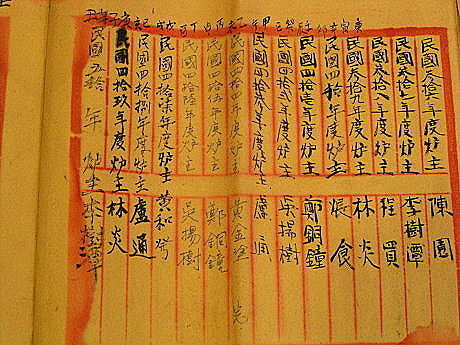 庚寅 辛卯 壬辰 癸巳 甲午 乙未 丙申 丁酉 戊戌 己亥 庚子 辛丑
民國叁拾六年度炉主 陳園
民國叁拾七年度炉主 李樹潭
民國叁拾八年度炉主 程買
民國叁拾九年度炉主 林炎
民國四拾年度炉主 張食
民國四拾壹年度炉主 鄭銅鐘
民國四拾貳年度炉主 吳揚樹
民國四拾叁年度炉主 盧
民國四拾四年度炉主 黃金堂
民國四拾伍年度炉主 鄭銅鐘
民國四拾陸年度炉主 吳揚樹
民國四拾柒年度炉主 黃和
民國四拾捌年度炉主 盧通
民國四拾玖年度炉主 林炎
民國五拾年 炉主 李樹